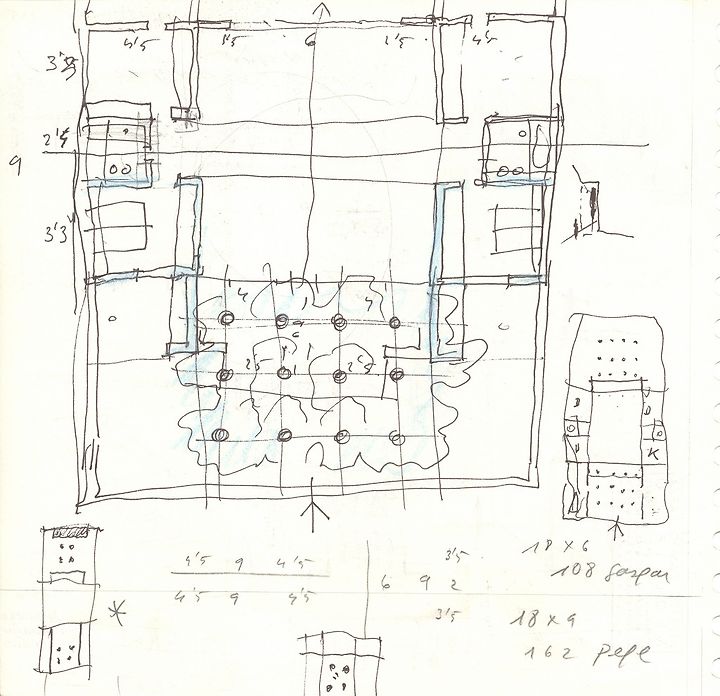 4'5 1'5 6 1'5 4'5
3'
2'4
9
3'3
4 4
2'5 2'5
D
D
K
4'5 9 4'5
4'5 9 4'5
3'5
6 9 2
3'5
18 x 6
108 gaspar
18 x 9
162 pepe